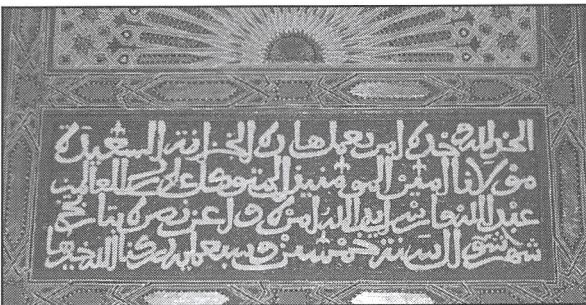 الحمد لله وحده امر بعمل هاذه الخزانة السعيدة
مولانا امير المومنين المتوكل على رب العالمين
عبد الله فارس ايد الله امره واعز نصره بتاريخ
شهر شوال سنة خمسين وسبعماية رزقنا الله خيرها